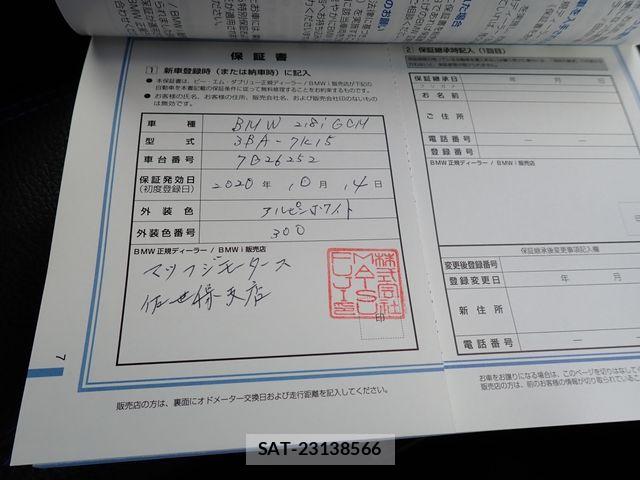 保証書
1 新車登録時（または納車時）に記入
● 本保証書は、ビー・エム・ダブリュー正規ディーラー / BMW i 販売店が下記の
自動車を本書記載の保証条件に従って無料修理することをお約束するものです。
● お客様の氏名、お客様の住所、販売会社名、および販売会社印のないもの
は無効です。
車種 BMW 218i GCM
型式 3BA-7K15
車台番号 7G26252
保証発効日
(初度登録日) 2020 年 10 月 14 日
外装色 アルピンホワイト
外装色番号 300
BMW 正規ディーラー / BMW i 販売店
マツフジモータース
佐世保支店
株式会社
MATSU
FUJI
印
7
販売店の方は、裏面にオドメーター交換日および走行距離を記入してください。
2 保証継承時記入（1回目）
保証継承日 年 月
お名前
ご住所
電話番号 － －
BMW 正規ディーラー / BMW i 販売店
保証継承後変更事項記入欄
変更後登録番号
登録変更日 年 月
新住所
電話番号 － －
お車をお譲りになる場合は、このページを切りはなして
販売店の方は、前のお客様の情報が切り取られている
SAT-23138566